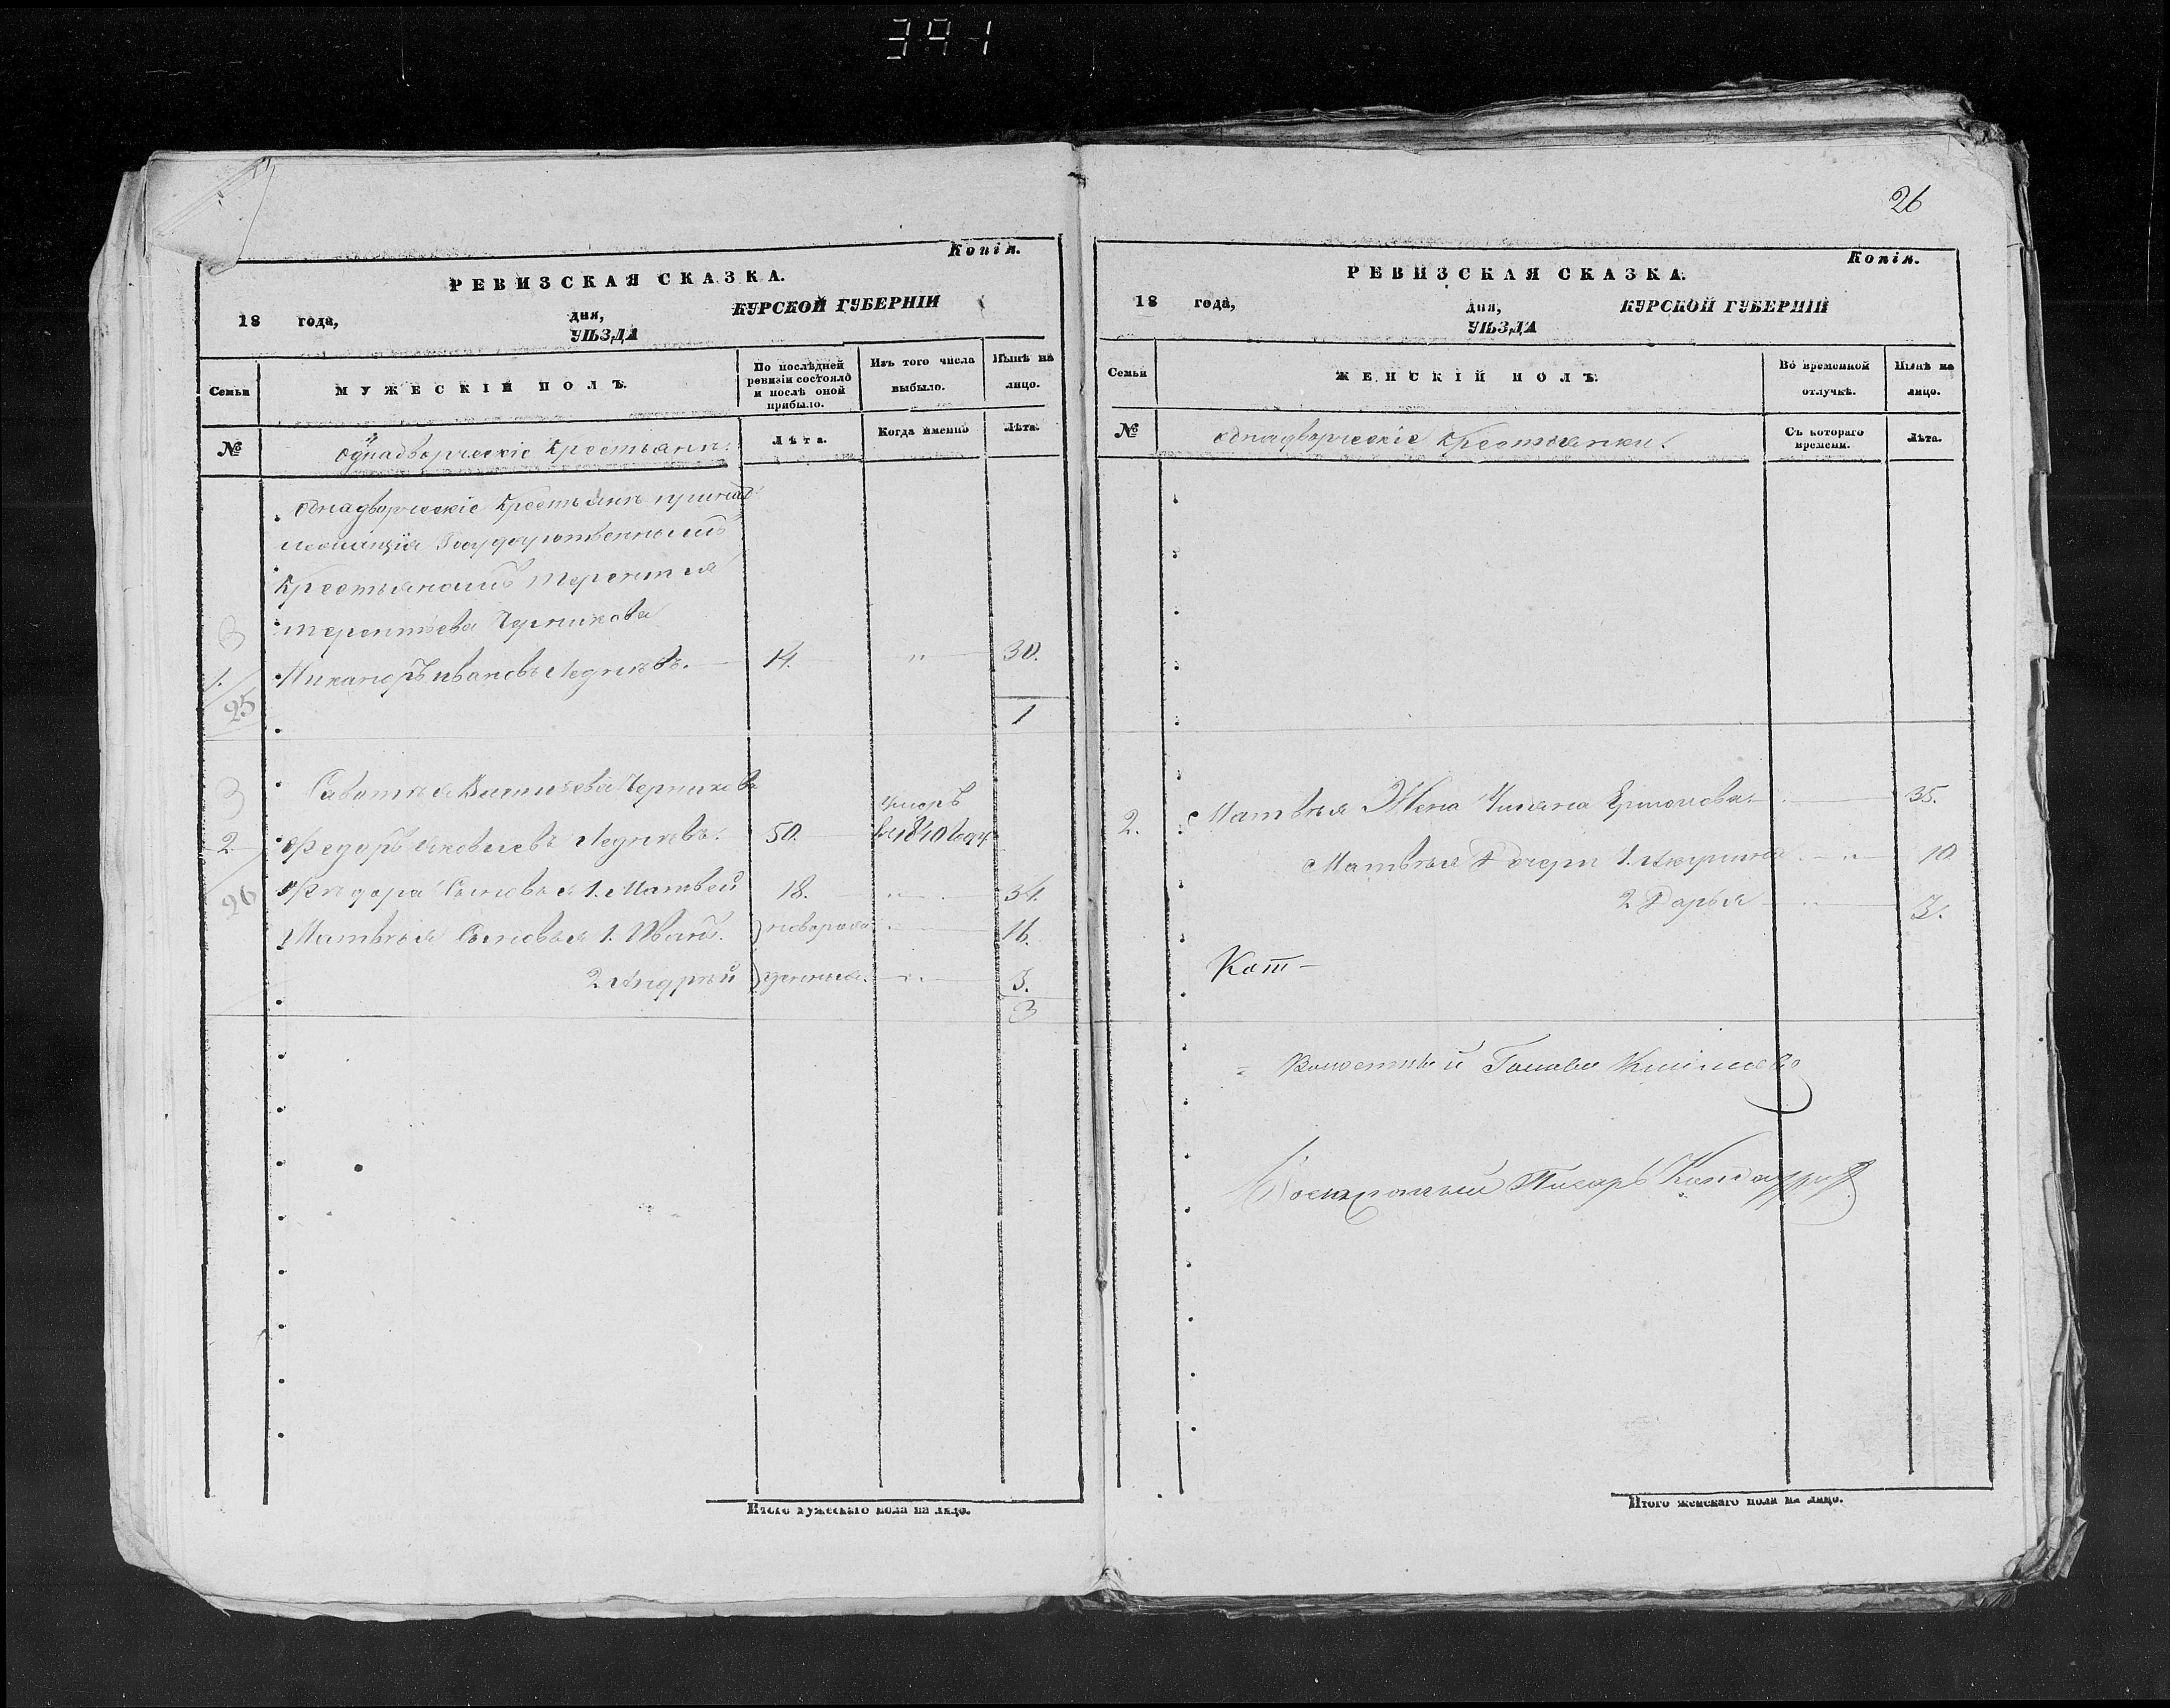 391
Копія.
РЕВИЗСКАЯ СКАЗКА.
18 года, дня, КУРСКОЙ ГУБЕРНІИ
УѢЗДА
Семьи
МУЖЕСКІЙ ПОЛЪ.
По послѣдней ревизіи состояло и послѣ оной прибыло.
Изъ того числа выбыло.
Нынѣ на лицо.
№
Однадворческіе Крестьяни.
Лѣта.
Когда именно
Лѣта.
однадворческіе Крестьянъ
Крестьяномъ Терентия
Терентьева Черникова
3
1. Никаноръ Ивановъ 14. " 30.
25
1
3
Васильева Черникова
умеръ
2. Федоръ Яковлевъ 50. въ 1840 году
26 Федора Сыновья 1. Матвей 18. " 34.
Матвѣя Сыновья 1. Иванъ. новорож " 16.
2 Андрѣй денныя. " 3.
3
Итого мужескаго пола на лицо.
26
Копія.
РЕВИЗСКАЯ СКАЗКА.
18 года, дня, КУРСКОЙ ГУБЕРНІИ
УѢЗДА
Семьи
ЖЕНСКІЙ ПОЛЪ.
Во временной отлучкѣ.
Нынѣ на лицо.
№
однадворческіе Крестьянки.
Съ котораго времени.
Лѣта.
2. Матвѣя Жена Ульяна Ермолова 35.
Матвѣя Дочери 1. Акулина " 10
2 Дарья " 3.
Волостный Голова
Писарь
Итого женскаго пола на лицо.